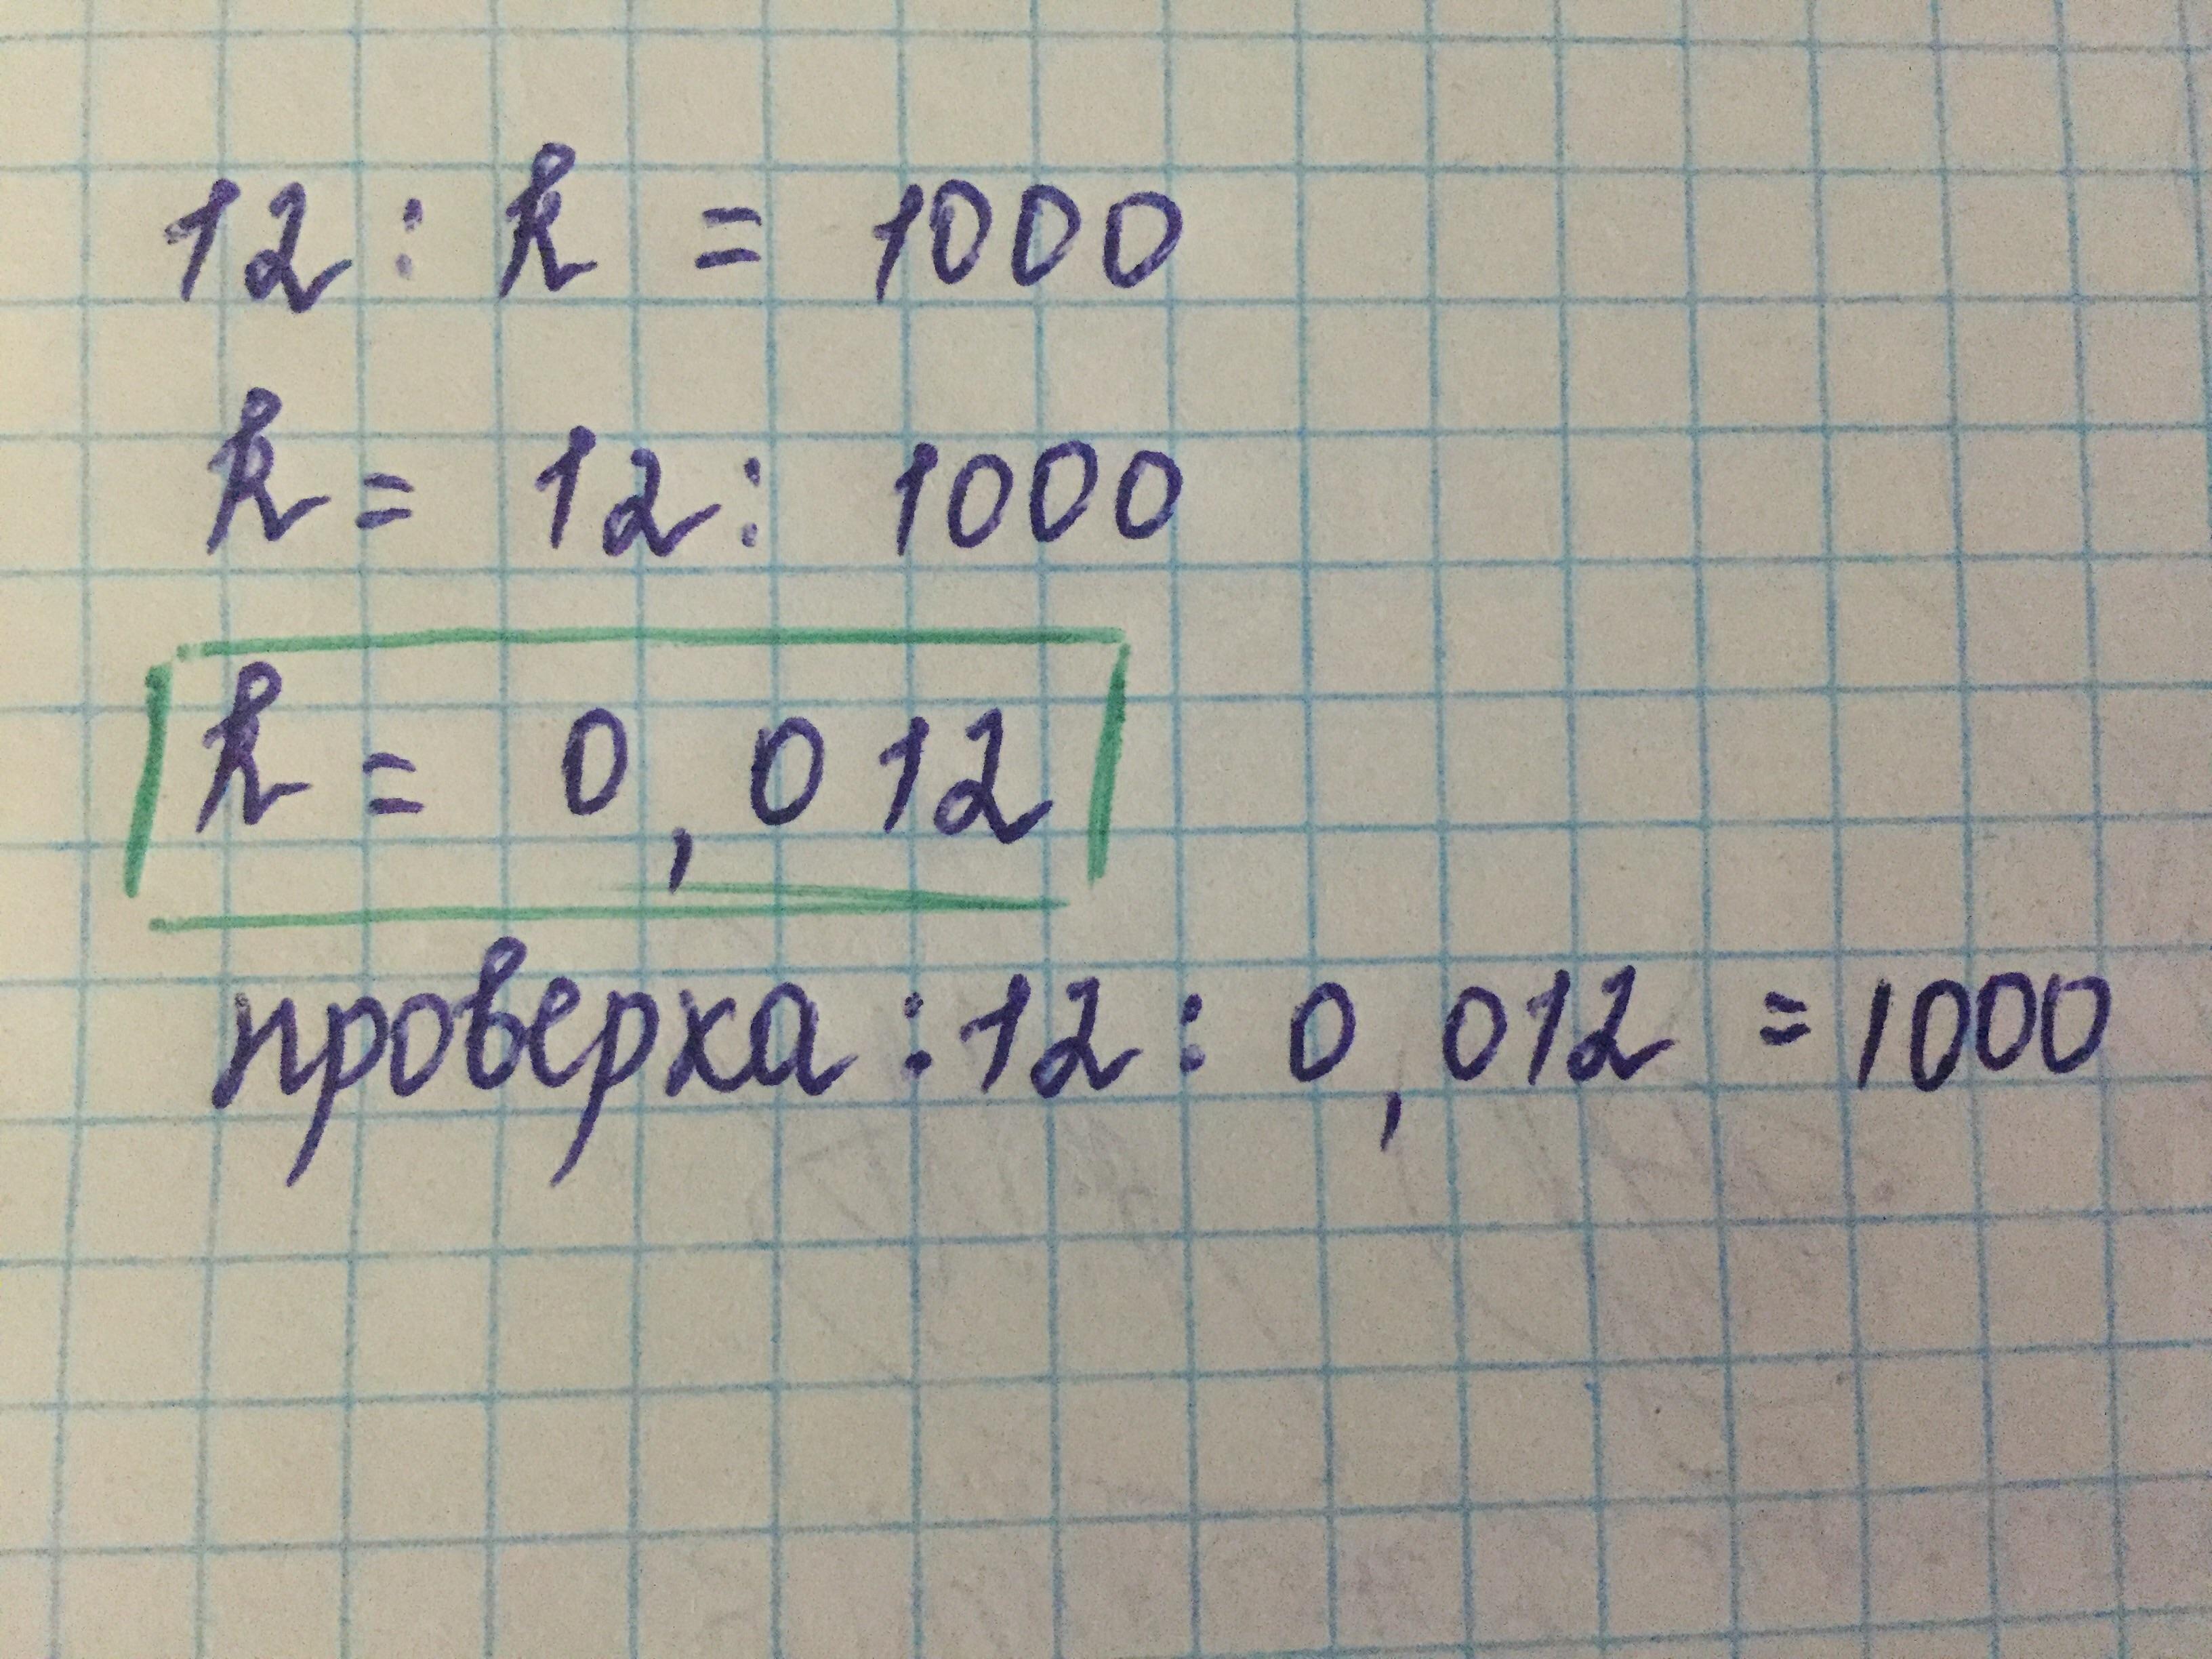 12 : k = 1000
k = 12 : 1000
k = 0,012
проверка : 12 : 0,012 = 1000